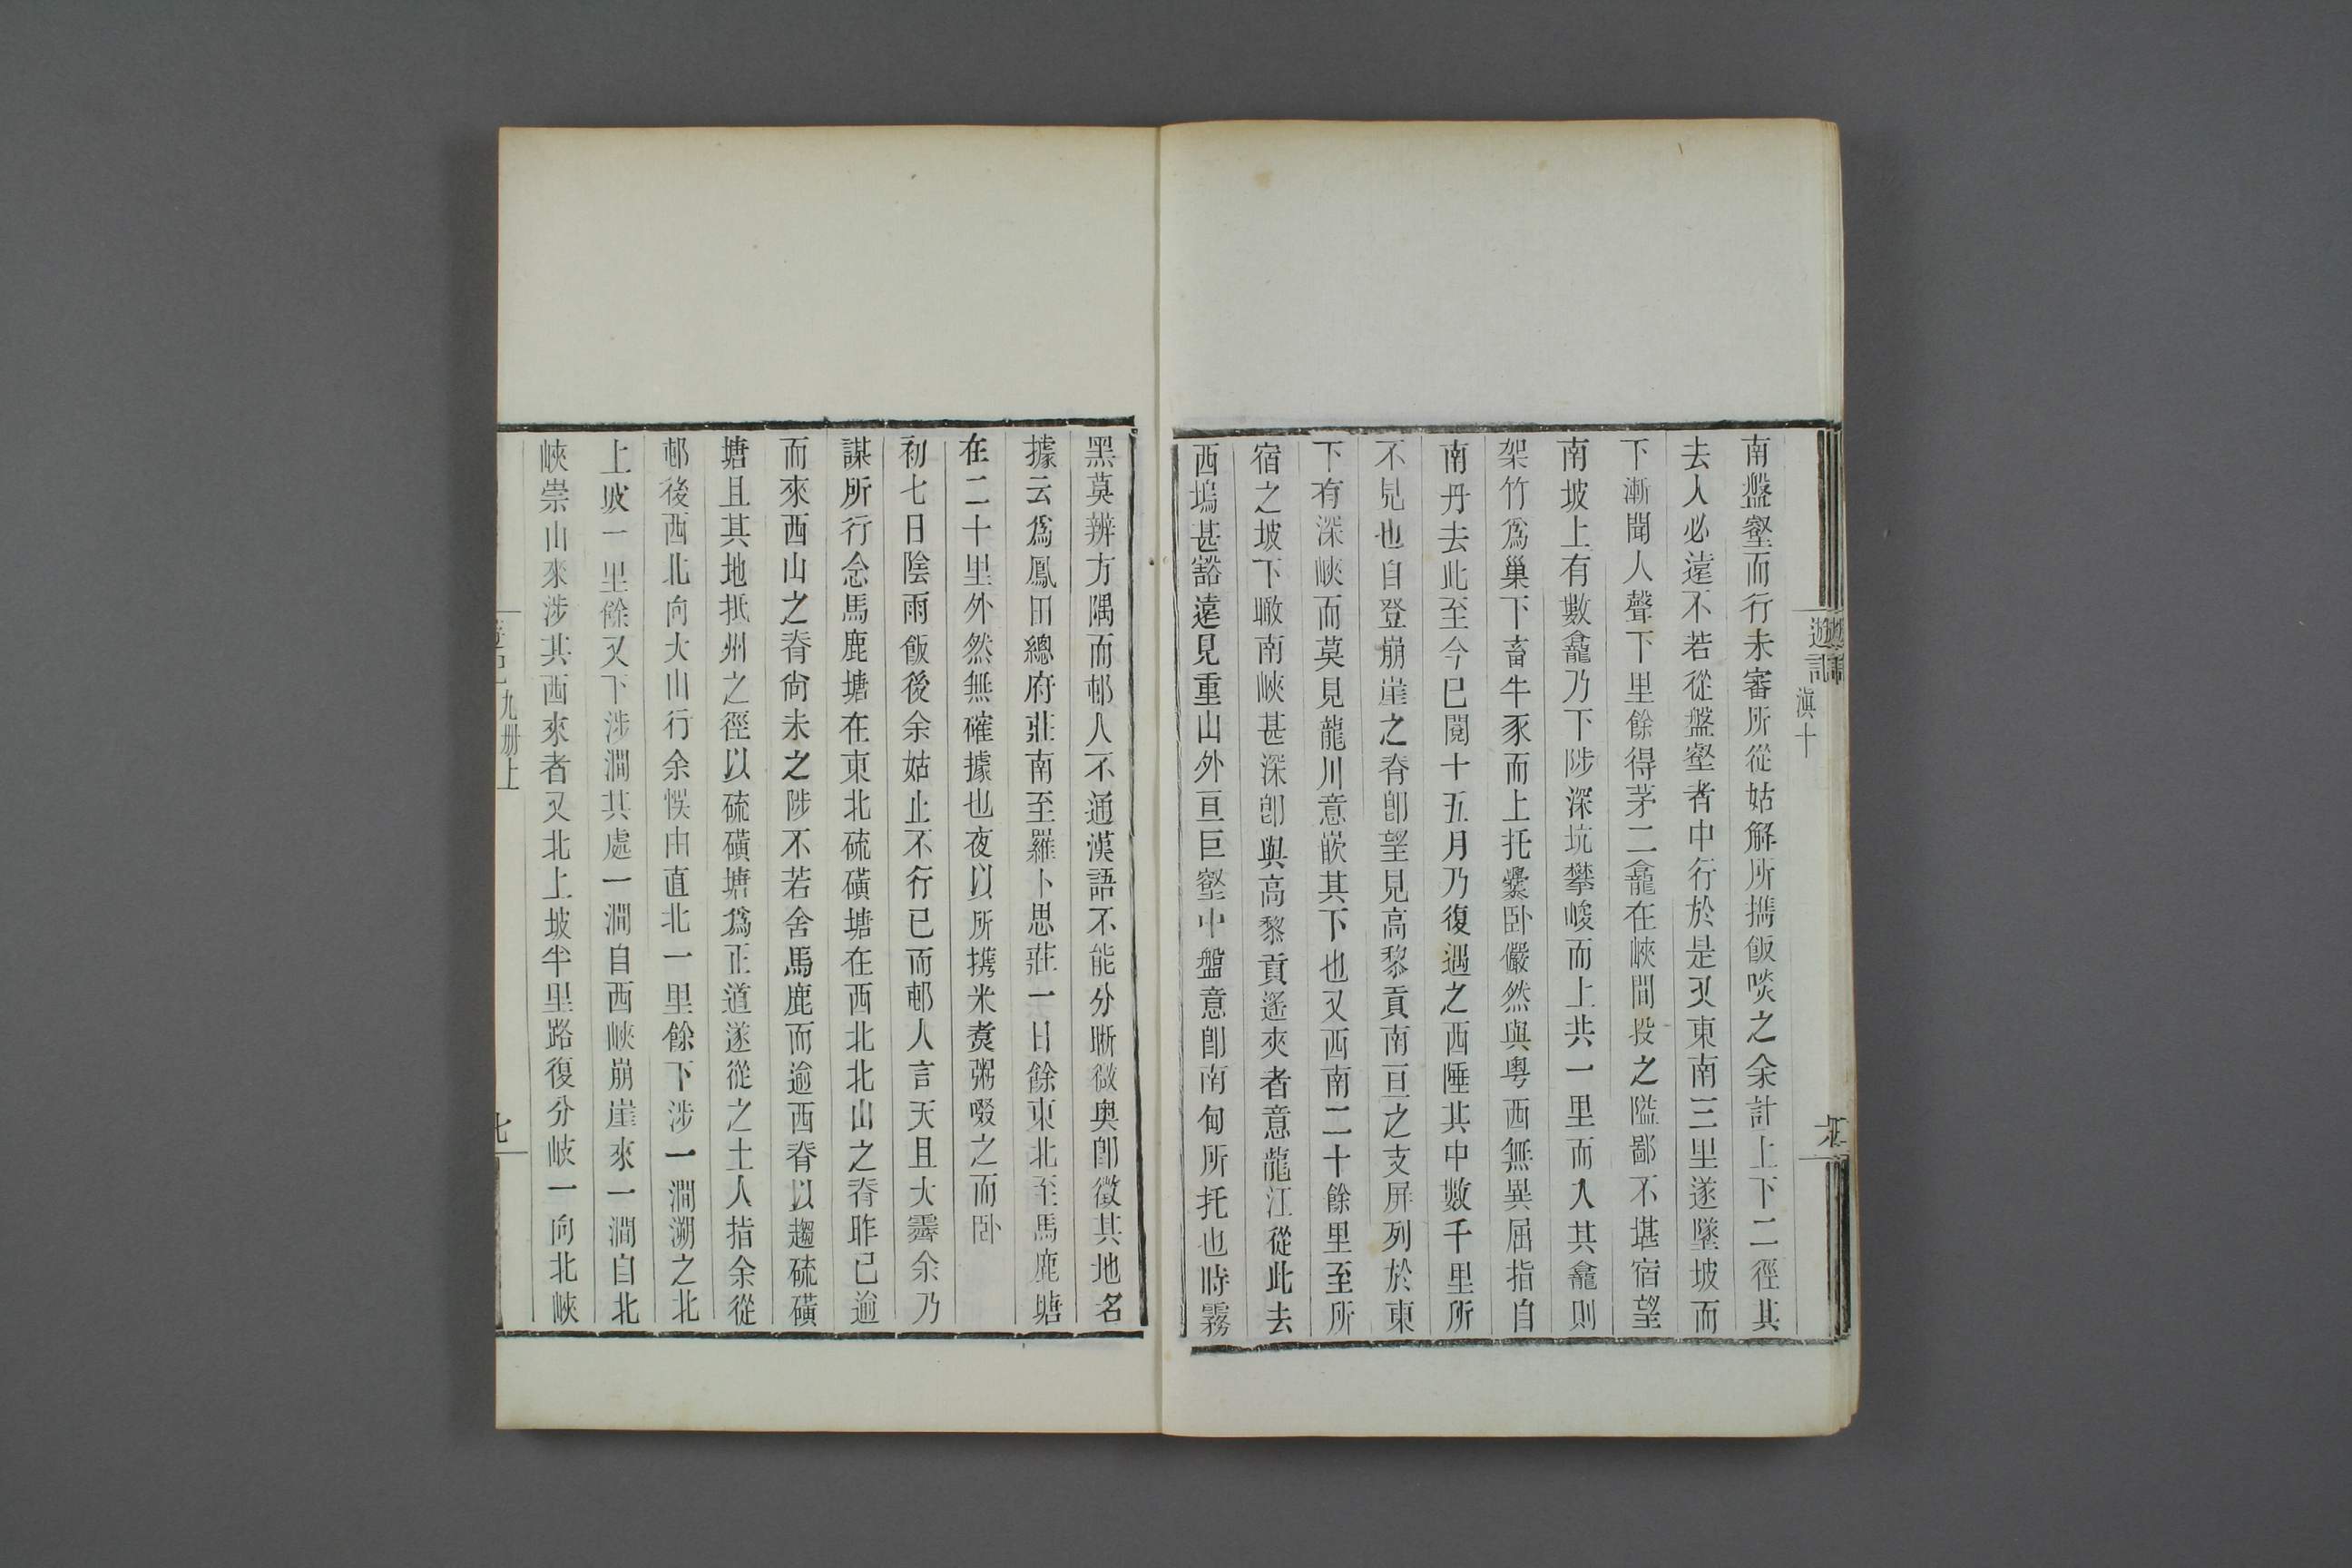 遊記
滇十
南盤壑而行未審所從姑解所攜飯啖之余計上下二徑其
去人必遠不若從盤壑者中行於是又東南三里遂墜坡而
下漸聞人聲下里餘得茅二龕在峽間投之隘鄙不堪宿望
南坡上有數龕乃下陟深坑攀峻而上共一里而入其龕則
架竹爲巢下畜牛豕而上托爨卧儼然與粵西無異屈指自
南丹去此至今已閱十五月乃復遇之西陲其中數千里所
不見也自登崩崖之脊卽望見高黎貢南亘之支屏列於東
下有深峽而莫見龍川意嵌其下也又西南二十餘里至所
宿之坡下瞰南峽甚深卽與高黎貢遙夾者意龍江從此去
西塢甚豁遠見重山外亘巨壑中盤意卽南甸所托也時霧
黑莫辨方隅而邨人不通漢語不能分晰微奧卽徵其地名
據云爲鳳田總府莊南至羅卜思莊一日餘東北至馬鹿塘
在二十里外然無確據也夜以所携米煑粥啜之而卧
初七日陰雨飯後余姑止不行已而邨人言天且大霽余乃
謀所行念馬鹿塘在東北硫磺塘在西北北山之脊昨已逾
而來西山之脊尙未之陟不若舍馬鹿而逾西脊以趨硫磺
塘且其地抵州之徑以硫磺塘爲正道遂從之土人指余從
邨後西北向大山行余悞由直北一里餘下涉一澗溯之北
上坡一里餘又下涉澗其處一澗自西峽崩崖來一澗自北
峽崇山來涉其西來者又北上坡半里路復分岐一向北峽
九册上
七